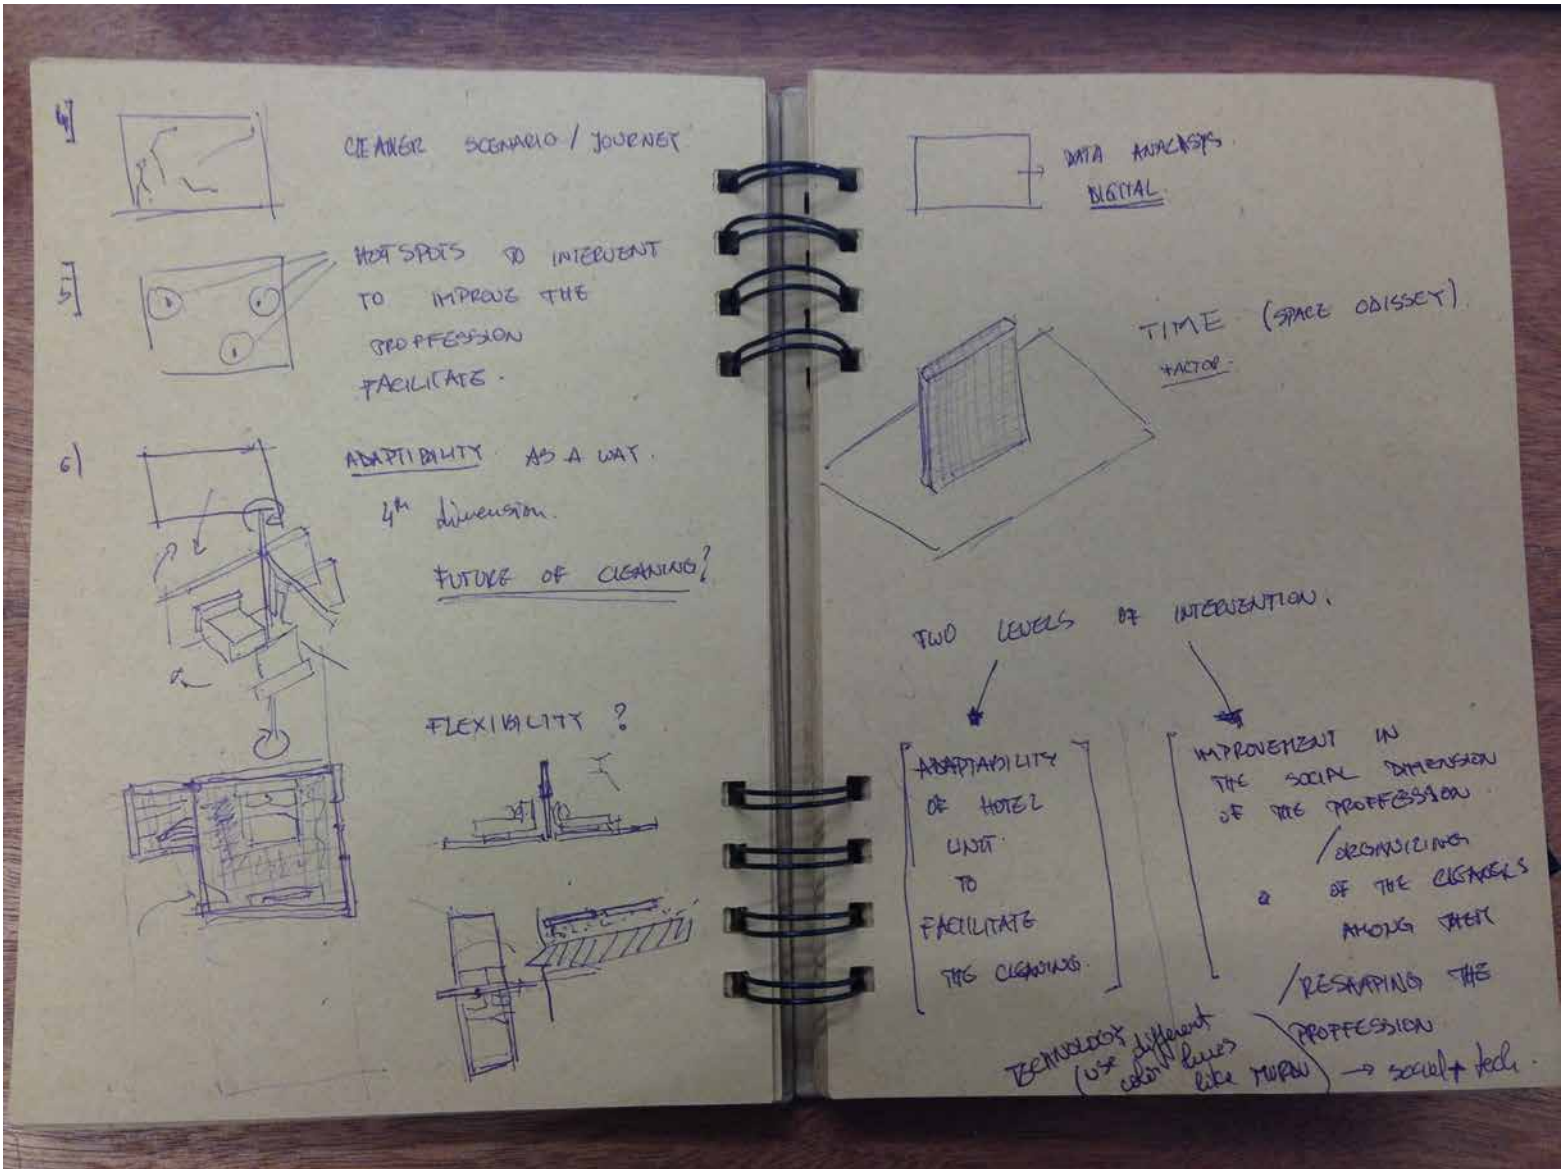 4]
CLEANER SCENARIO / JOURNEY
5]
HOTSPOTS TO INTERVENT
TO IMPROVE THE
PROFFESSION
FACILITATE.
6)
ADAPTIBILITY AS A WAY.
4th dimension.
FUTURE OF CLEANING?
FLEXIBILITY ?
DATA ANALASYS.
DIGITAL.
TIME (SPACE ODISSEY).
FACTOR.
TWO LEVELS OF INTERVENTION.
ADAPTABILITY
OF HOTEL
UNIT.
TO
FACILITATE
THE CLEANING.
IMPROVEMENT IN
THE SOCIAL DIMENSION
OF THE PROFFESSION
/ORGANIZING
OF THE CLEANERS
AMONG THEM
/RESHAPING THE
PROFFESSION
→ social + tech.
TECHNOLOGY
(use different
color lines
like